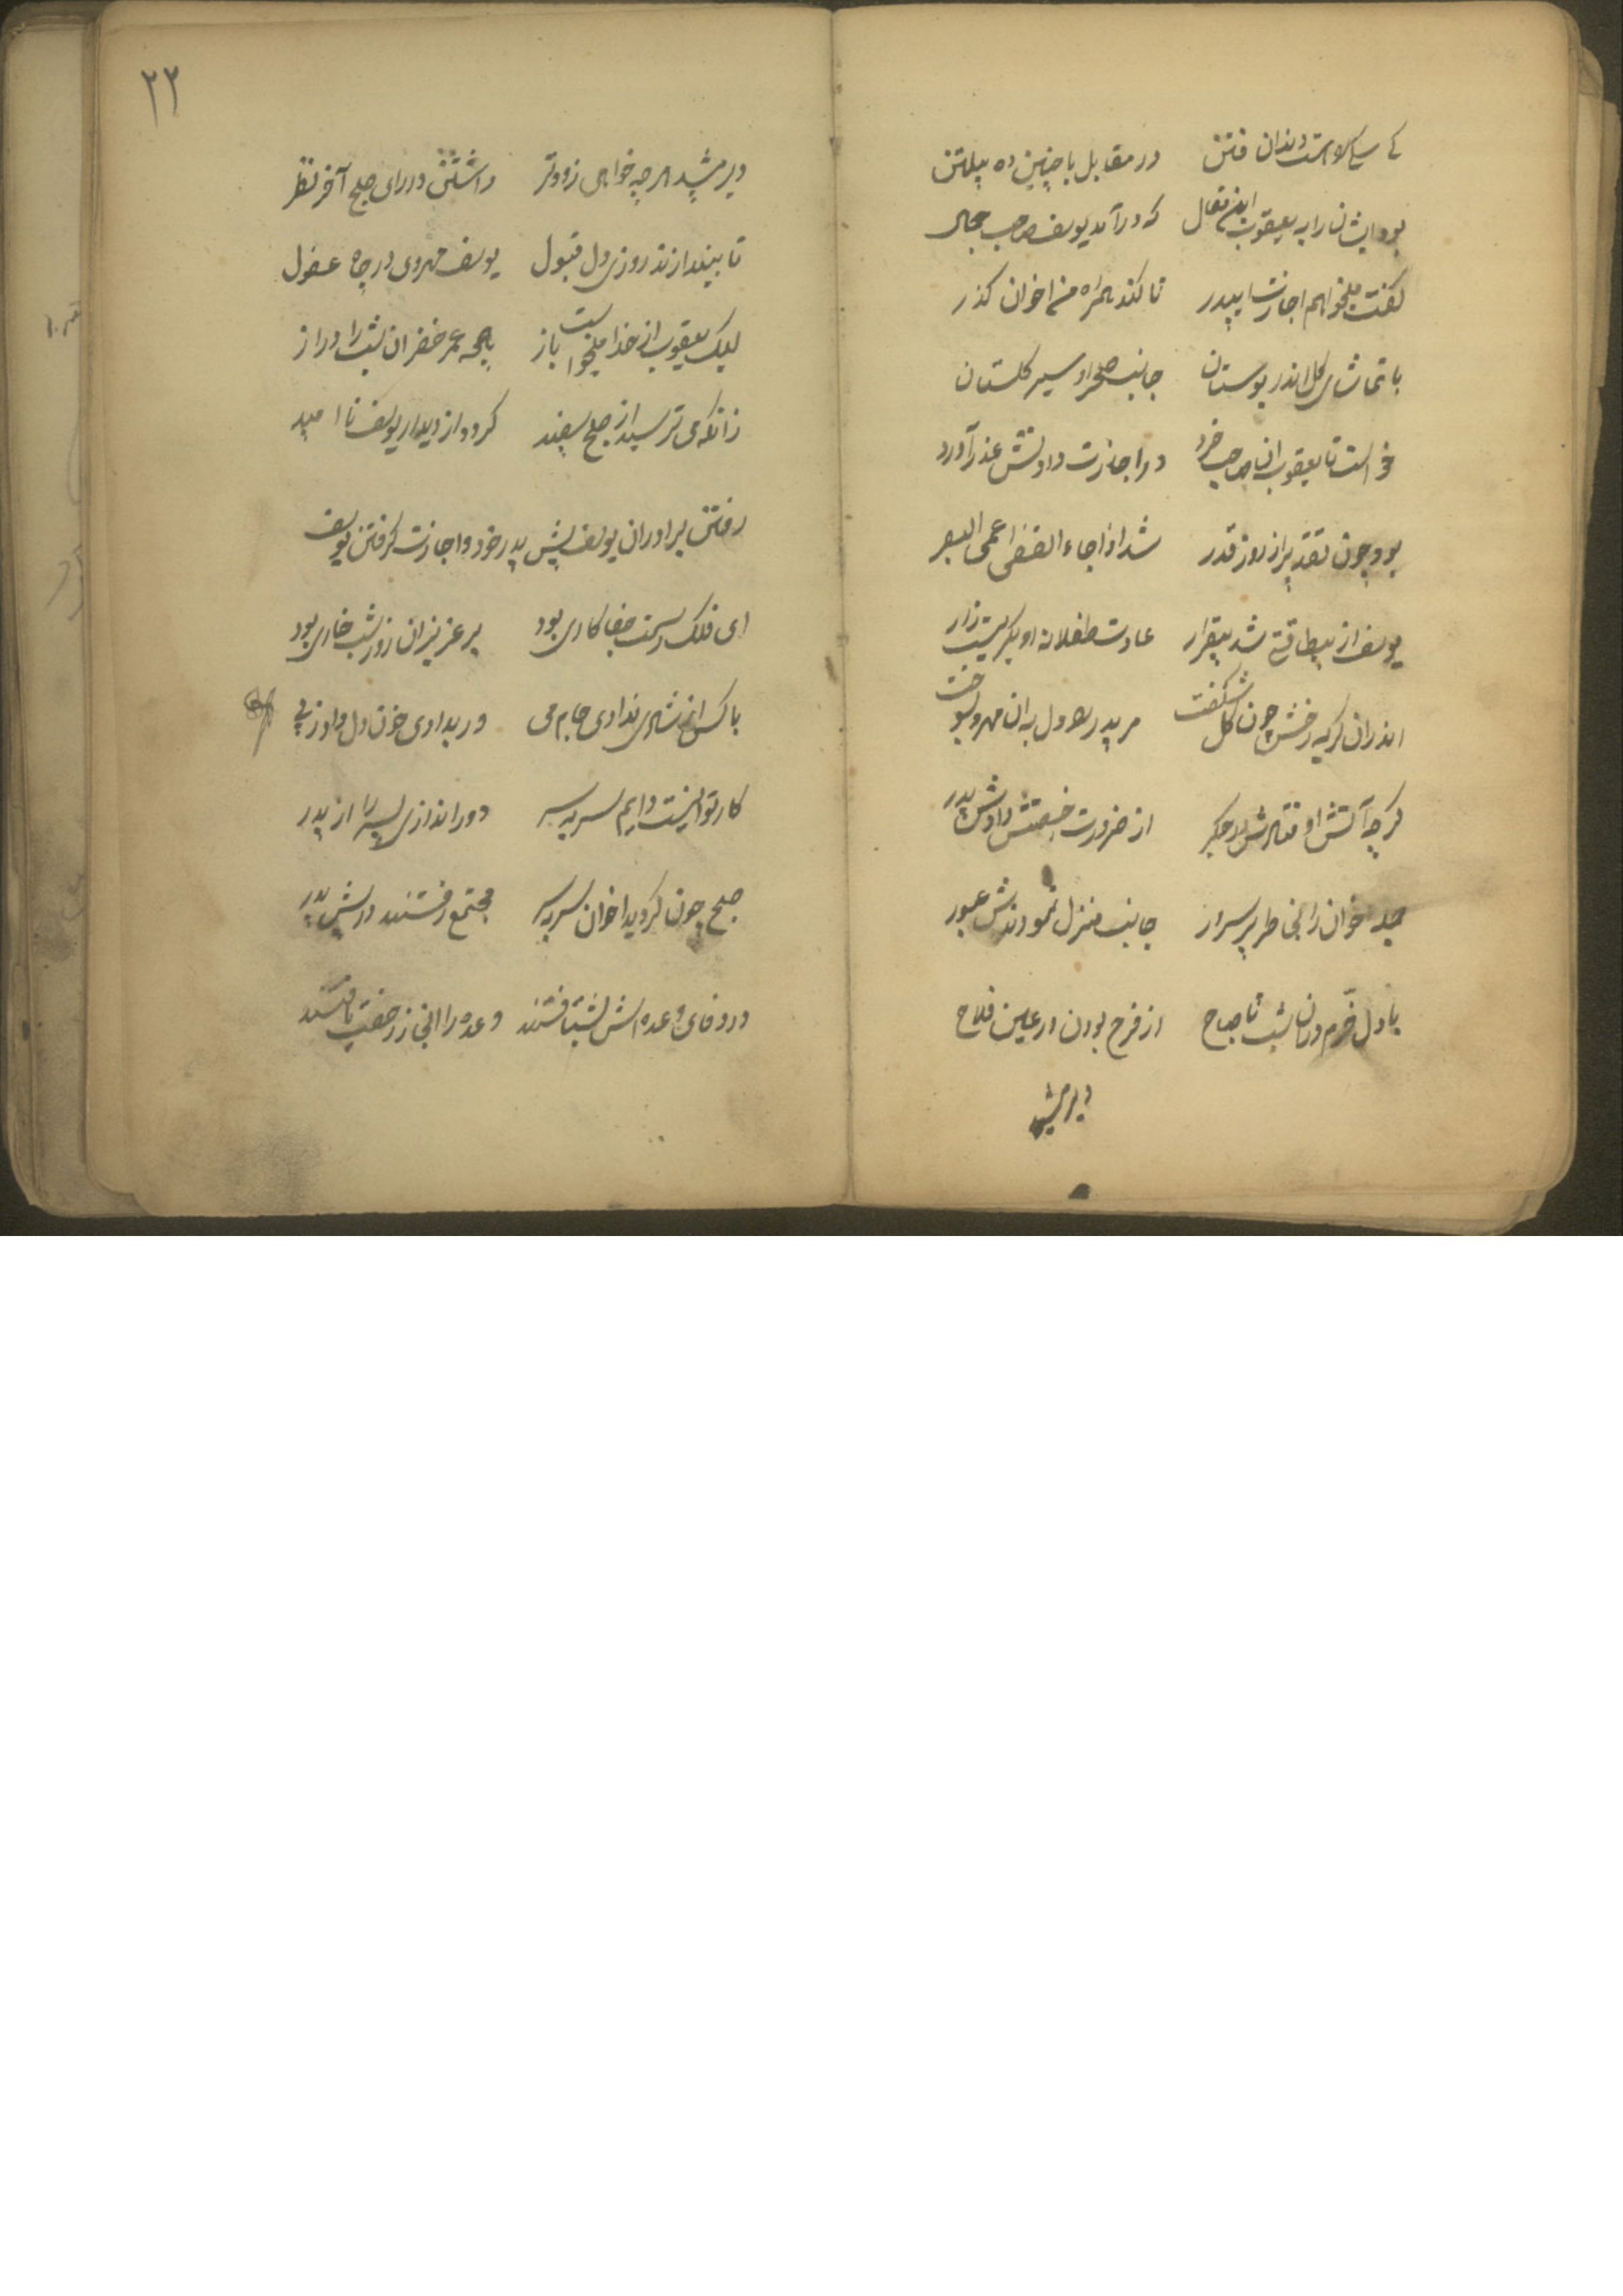 کی سگ لاوست دندان فتن در مقابل با چنین ده پیلتن
بود ایشان را به یعقوب این مقال که درآمد یوسف صاحب جمال
گفت میخواهم اجازت ای پدر تا کند همراه من اخوان گذر
با تماشای گل اندر بوستان جانب صحرا و سیر گلستان
خواست تا یعقوب ان صاحب خرد در اجازت دادنش عذر آورد
بود چون تقدیر از روز قدر شد اذا جاء القضی اعمی البصر
یوسف از بیطاقتی شد بیقرار عادت طفلانه او بگریست زار
اندران گریه رخش چون گل شکفت مر پدر را دل بدان مهرو بسوخت
گرچه آتش اوفتادش در جگر از ضرورت رخصتش دادش پدر
جمله اخوان را بخاطر پر سرور جانب منزل نمودندش عبور
با دل خرم دران شب تا صباح از فرح بودن در عین فلاح
دیر میشد
۲۲
دیر میشد هر چه خواهی زودتر داشتن در رای صبح آخر نظر
تا بیندازند روزی دل قبول یوسف مهروی در چاه عضول
لیک یعقوب از خدا میخواست باز همچه عمر خضر ان شب را دراز
زانکه می ترسید از صبح سفید گردد از دیدار یوسف نا امید
رفتن برادران یوسف پیش پدر خود و اجازت گرفتن یوسف
ای فلک رسمت جفا کاری بود بر عزیزان روز شب خاری بود
با کس از شادی ندادی جام می ور بدادی خون دل داد ز پی
کار تو اینست دایم سربسر دور اندازی پسر را از پدر
صبح چون گردید اخوان سربسر مجتمع رفتند در پیش پدر
در وفای وعده اش بشتافتند وعده را انجاز رخصت یافتند